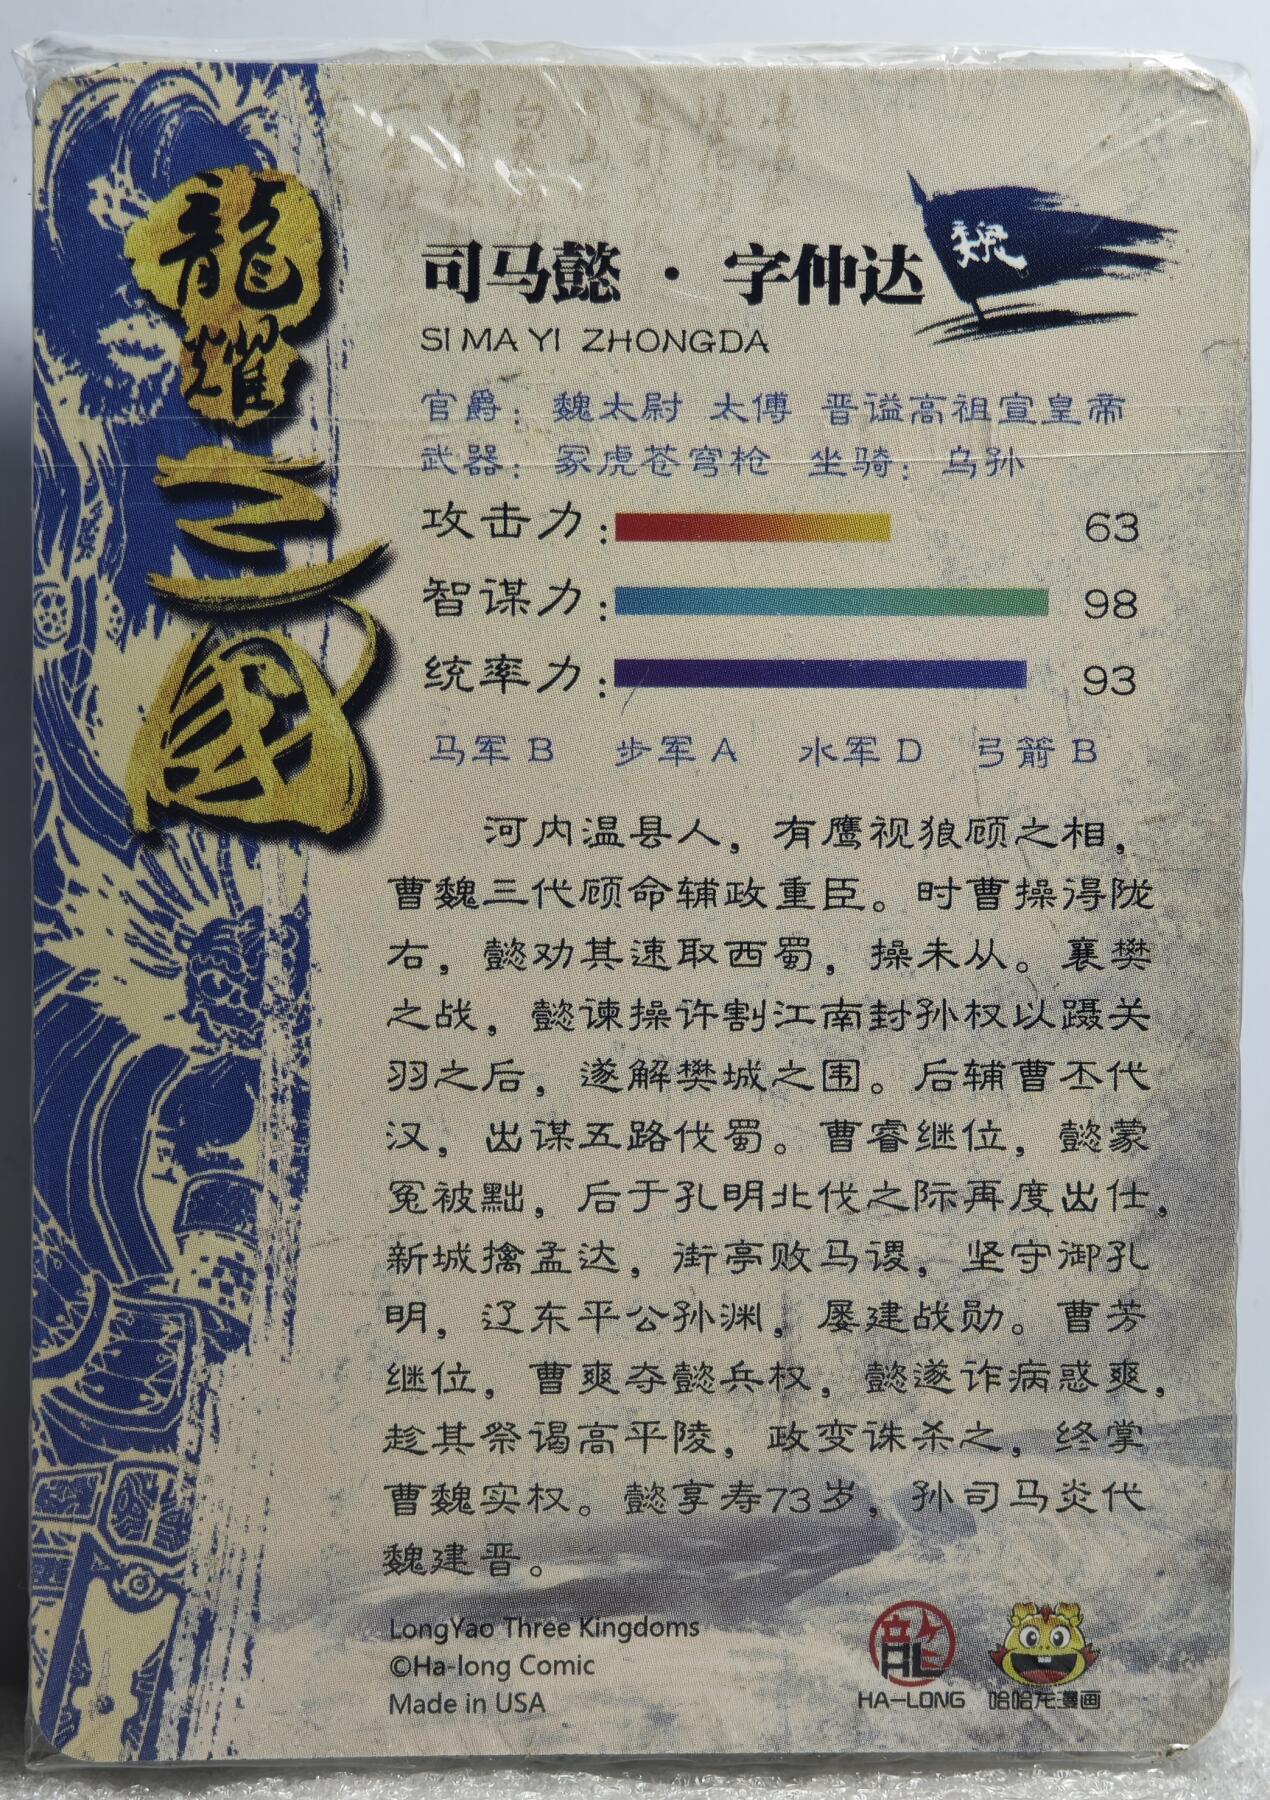 龍耀三國
司马懿·字仲达
魏
SI MA YI ZHONGDA
官爵：魏太尉 太傅 晋谥高祖宣皇帝
武器：冢虎苍穹枪 坐骑：乌孙
攻击力：63
智谋力：98
统率力：93
马军B 步军A 水军D 弓箭B
河内温县人，有鹰视狼顾之相，
曹魏三代顾命辅政重臣。时曹操得陇
右，懿劝其速取西蜀，操未从。襄樊
之战，懿谏操许割江南封孙权以蹑关
羽之后，遂解樊城之围。后辅曹丕代
汉，出谋五路伐蜀。曹睿继位，懿蒙
冤被黜，后于孔明北伐之际再度出仕，
新城擒孟达，街亭败马谡，坚守御孔
明，辽东平公孙渊，屡建战勋。曹芳
继位，曹爽夺懿兵权，懿遂诈病惑爽，
趁其祭谒高平陵，政变诛杀之，终掌
曹魏实权。懿享寿73岁，孙司马炎代
魏建晋。
LongYao Three Kingdoms
©Ha-long Comic
Made in USA
HA-LONG 哈哈龙漫画